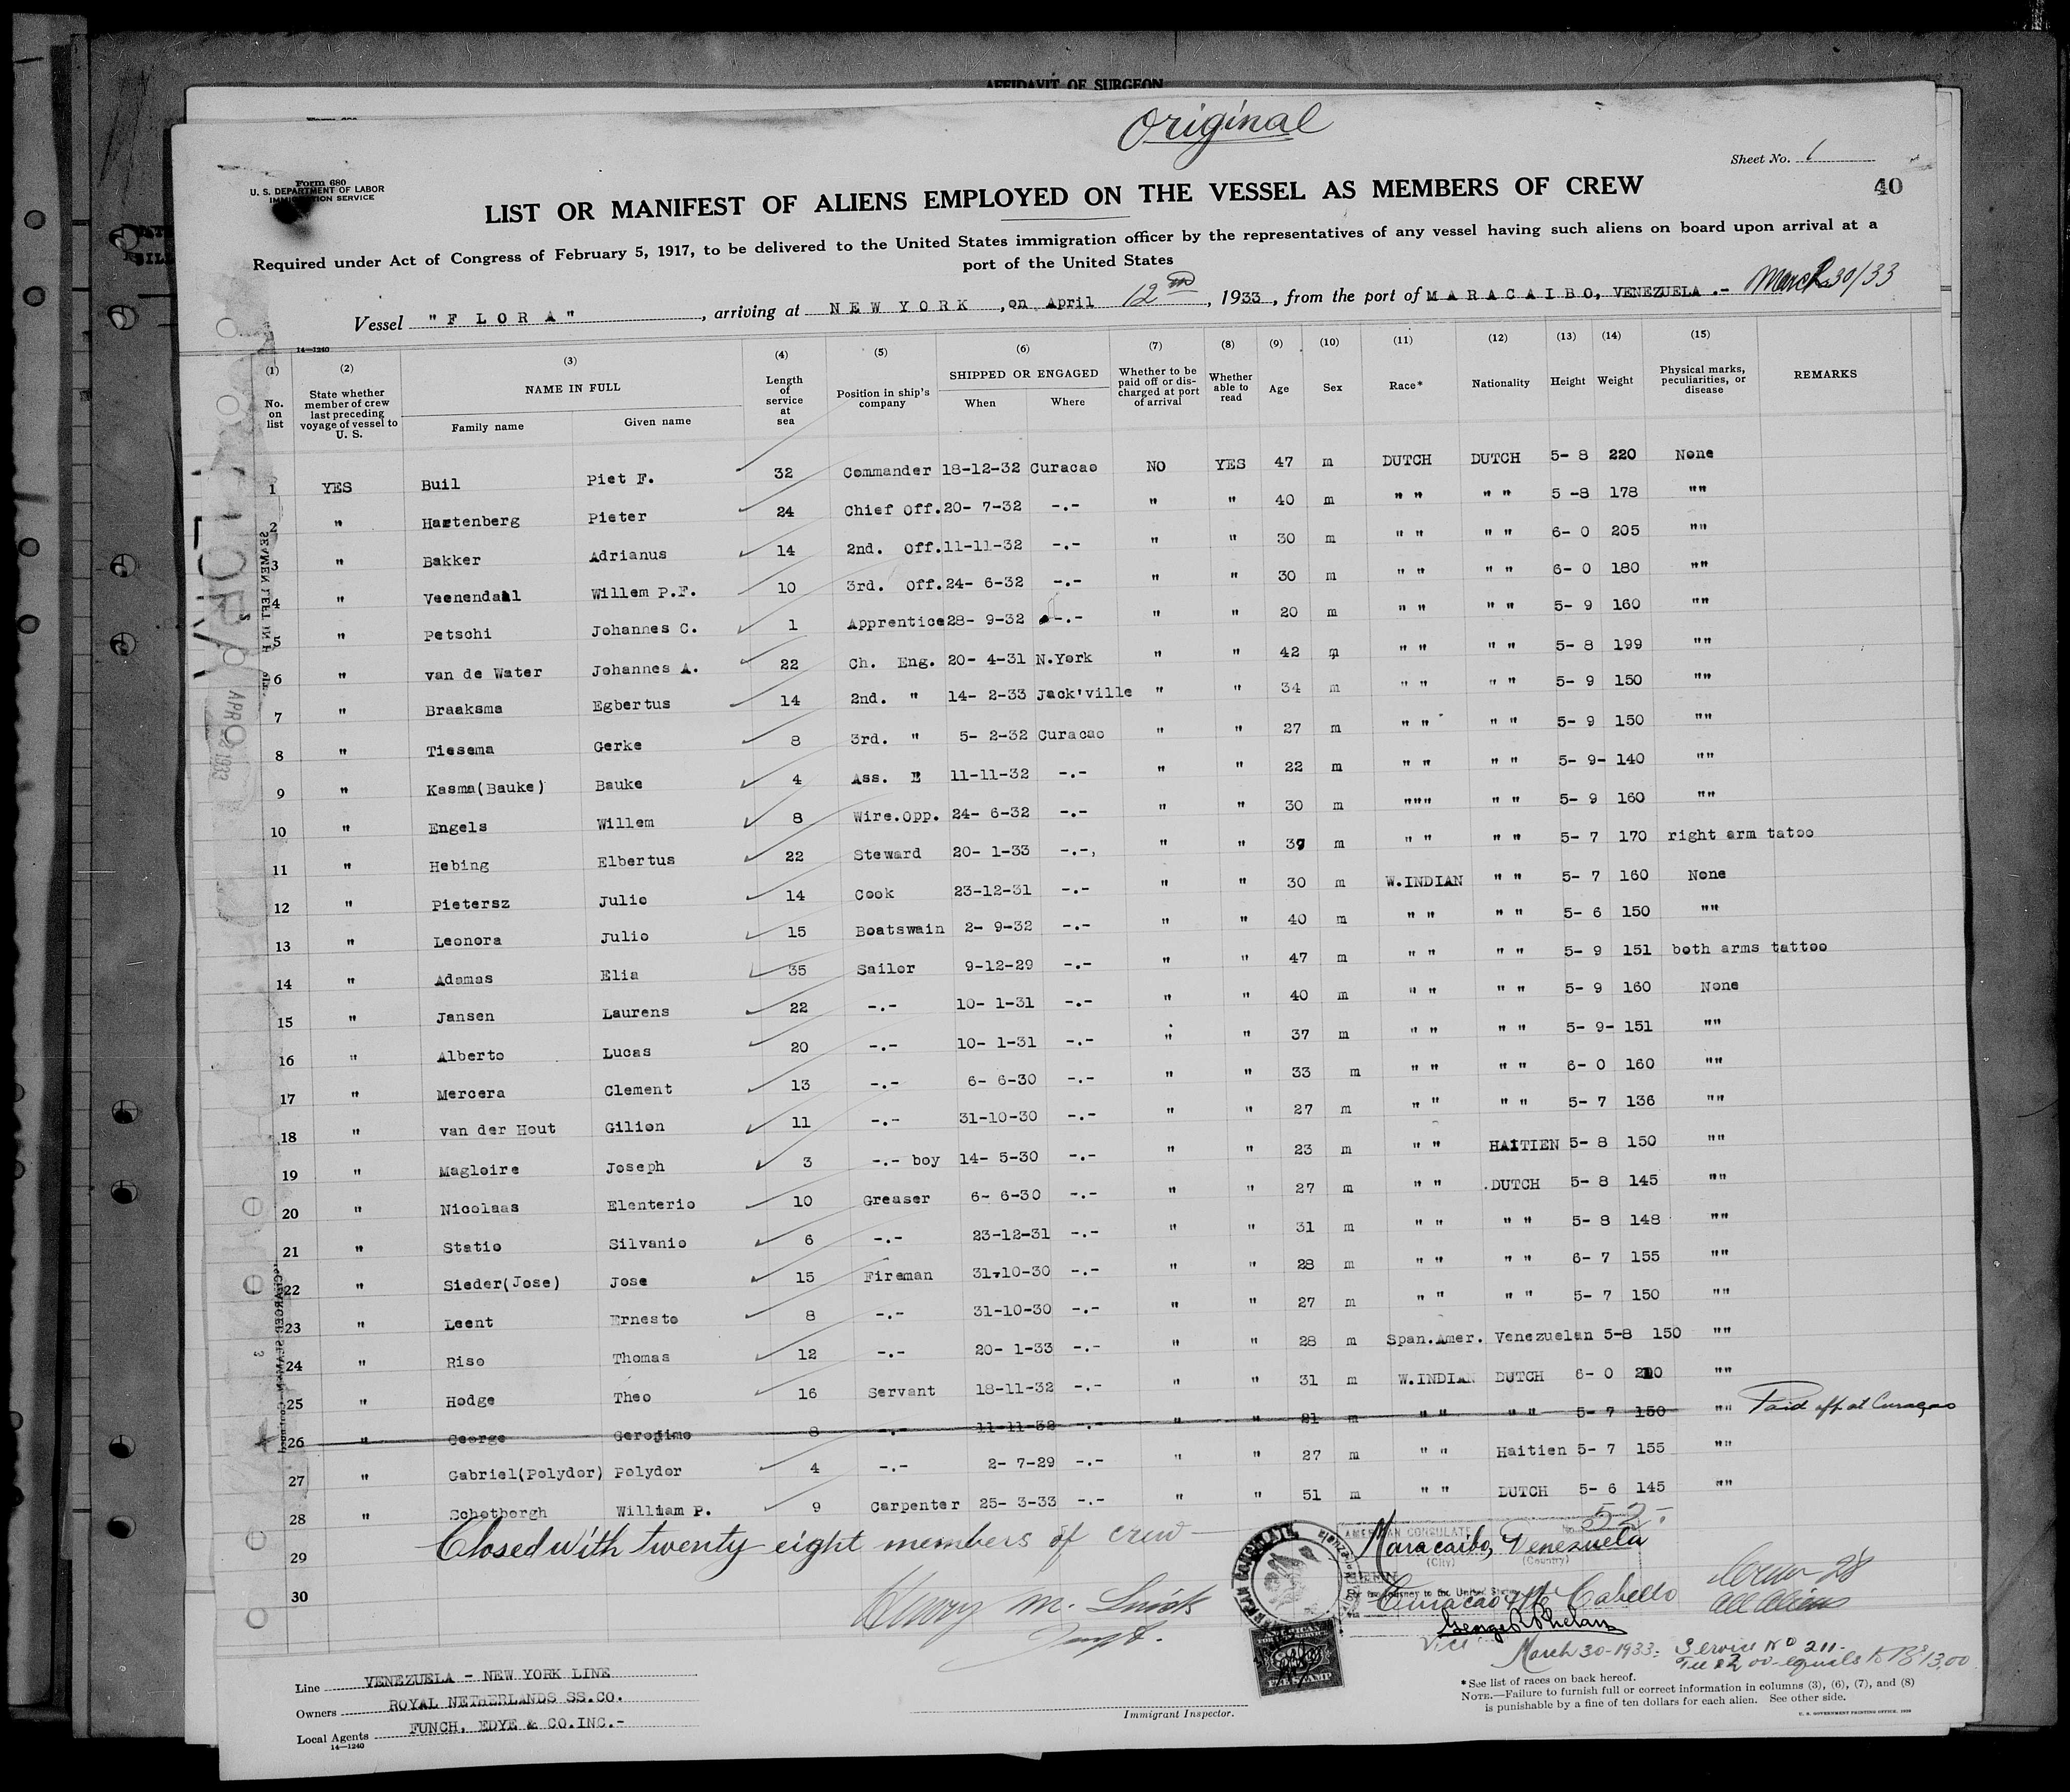 AFFIDAVIT OF SURGEON
Original
Form 680
U. S. DEPARTMENT OF LABOR
IMMIGRATION SERVICE
Sheet No. 1
40
LIST OR MANIFEST OF ALIENS EMPLOYED ON THE VESSEL AS MEMBERS OF CREW
Required under Act of Congress of February 5, 1917, to be delivered to the United States immigration officer by the representatives of any vessel having such aliens on board upon arrival at a
port of the United States
Vessel "F L O R A", arriving at N E W Y O R K, on April 12th, 1933, from the port of M A R A C A I B O, VENEZUELA.- March 30/33
14—1240
(1) No. on list (2) State whether member of crew last preceding voyage of vessel to U. S. (3) NAME IN FULL Family name Given name (4) Length of service at sea (5) Position in ship's company (6) SHIPPED OR ENGAGED When Where (7) Whether to be paid off or discharged at port of arrival (8) Whether able to read (9) Age (10) Sex (11) Race* (12) Nationality (13) Height (14) Weight (15) Physical marks, peculiarities, or disease REMARKS
1 YES Buil Piet F. 32 Commander 18-12-32 Curacao NO YES 47 m DUTCH DUTCH 5- 8 220 None
2 " Hartenberg Pieter 24 Chief Off. 20- 7-32 -.- " " 40 m " " " " 5 -8 178 ""
3 " Bakker Adrianus 14 2nd. Off. 11-11-32 -.- " " 30 m " " " " 6- 0 205 ""
4 " Veenendaal Willem P.F. 10 3rd. Off. 24- 6-32 -.- " " 30 m " " " " 6- 0 180 ""
5 " Petschi Johannes C. 1 Apprentice 28- 9-32 -.- " " 20 m " " " " 5- 9 160 ""
6 " van de Water Johannes A. 22 Ch. Eng. 20- 4-31 N.York " " 42 m " " " " 5- 8 199 ""
7 " Braaksma Egbertus 14 2nd. " 14- 2-33 Jack'ville " " 34 m " " " " 5- 9 150 ""
8 " Tiesema Gerke 8 3rd. " 5- 2-32 Curacao " " 27 m " " " " 5- 9 150 ""
9 " Kasma(Bauke) Bauke 4 Ass. E 11-11-32 -.- " " 22 m " " " " 5- 9- 140 ""
10 " Engels Willem 8 Wire.Opp. 24- 6-32 -.- " " 30 m """ " " 5- 9 160 ""
11 " Hebing Elbertus 22 Steward 20- 1-33 -.-, " " 39 m " " " " 5- 7 170 right arm tatoo
12 " Pietersz Julio 14 Cook 23-12-31 -.- " " 30 m W.INDIAN " " 5- 7 160 None
13 " Leonora Julio 15 Boatswain 2- 9-32 -.- " " 40 m " " " " 5- 6 150 ""
14 " Adamas Elia 35 Sailor 9-12-29 -.- " " 47 m " " " " 5- 9 151 both arms tattoo
15 " Jansen Laurens 22 -.- 10- 1-31 -.- " " 40 m " " " " 5- 9 160 None
16 " Alberto Lucas 20 -.- 10- 1-31 -.- " " 37 m " " " " 5- 9- 151 ""
17 " Mercera Clement 13 -.- 6- 6-30 -.- " " 33 m " " " " 6- 0 160 ""
18 " van der Hout Gilion 11 -.- 31-10-30 -.- " " 27 m " " " " 5- 7 136 ""
19 " Magloire Joseph 3 -.- boy 14- 5-30 -.- " " 23 m " " HAITIEN 5- 8 150 ""
20 " Nicolaas Elenterio 10 Greaser 6- 6-30 -.- " " 27 m " " .DUTCH 5- 8 145 ""
21 " Statio Silvanio 6 -.- 23-12-31 -.- " " 31 m " " " " 5- 8 148 ""
22 " Sieder(Jose) Jose 15 Fireman 31-10-30 -.- " " 28 m " " " " 6- 7 155 ""
23 " Leent Ernesto 8 -.- 31-10-30 -.- " " 27 m " " " " 5- 7 150 ""
24 " Riso Thomas 12 -.- 20- 1-33 -.- " " 28 m Span.Amer. Venezuelan 5-8 150 ""
25 " Hodge Theo 16 Servant 18-11-32 -.- " " 31 m W.INDIAN DUTCH 6- 0 200 ""
26 " George Geronimo 8 -.- 11-11-32 -.- " " 21 m " " " " 5- 7 150 "" Paid off at Curaçao
27 " Gabriel(Polydor) Polydor 4 -.- 2- 7-29 -.- " " 27 m " " Haitien 5- 7 155 ""
28 " Schotborgh William P. 9 Carpenter 25- 3-33 -.- " " 51 m " " DUTCH 5- 6 145 ""
29 Closed with twenty eight members of crew
30
AMERICAN CONSULATE
No. 52.-
Maracaibo, Venezuela
(City) (Country)
for the journey to the United States
Curacao Pto Cabello
George R Phelan
Vice
March 30-1933.
Service No 211.
Fee $2.00 equals to Bs 13.00
Crew 28
All Aliens
Henry M.
Line VENEZUELA - NEW YORK LINE
Owners ROYAL NETHERLANDS SS.CO.
Local Agents FUNCH, EDYE & CO.INC.-
14—1240
Immigrant Inspector.
*See list of races on back hereof.
NOTE.—Failure to furnish full or correct information in columns (3), (6), (7), and (8)
is punishable by a fine of ten dollars for each alien. See other side.
U. S. GOVERNMENT PRINTING OFFICE